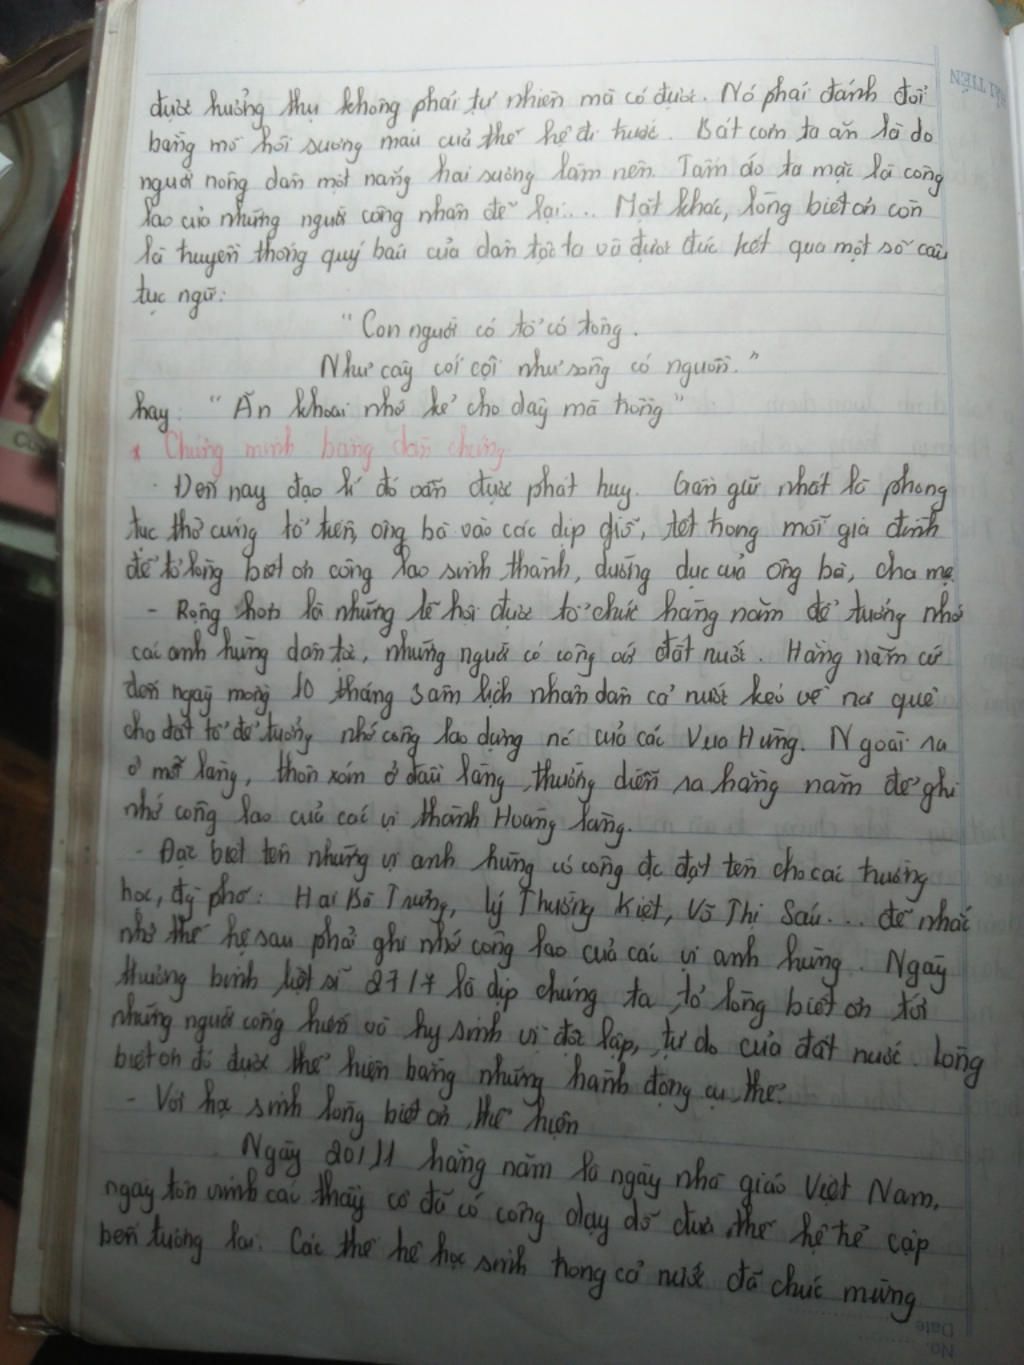 được hưởng thụ không phải tự nhiên mà có được. Nó phải đánh đổi
bằng mồ hôi sương máu của thế hệ đi trước. Bát cơm ta ăn là do
người nông dân một nắng hai sương làm nên. Tấm áo ta mặc là công
lao của những người công nhân để lại.... Mặt khác, lòng biết ơn còn
là truyền thống quý báu của dân tộc ta và được đúc kết qua một số câu
tục ngữ:
"Con người có tổ có tông.
Như cây cối cội như sông có nguồn."
hay: "Ăn khoai nhớ kẻ cho dây mà trồng"
* Chứng minh bằng dẫn chứng
- Đến nay đạo lí đó vẫn được phát huy. Gần gũi nhất là phong
tục thờ cúng tổ tiên, ông bà vào các dịp giỗ, tết trong mỗi gia đình
để tỏ lòng biết ơn công lao sinh thành, dưỡng dục của ông bà, cha mẹ.
- Rộng hơn là những lễ hội được tổ chức hàng năm để tưởng nhớ
các anh hùng dân tộc, những người có công với đất nước. Hàng năm cứ
đến ngày mồng 10 tháng 3 âm lịch nhân dân cả nước kéo về nơi quê
cha đất tổ để tưởng nhớ công lao dựng nước của các Vua Hùng. Ngoài ra
ở mỗi làng, thôn xóm ở đầu làng, thường diễn ra hằng năm để ghi
nhớ công lao của các vị thành Hoàng làng.
- Đặc biệt tên những vị anh hùng có công đc đặt tên cho các trường
học, đg phố: Hai Bà Trưng, Lý Thường Kiệt, Võ Thị Sáu... để nhắc
nhở thế hệ sau phải ghi nhớ công lao của các vị anh hùng. Ngày
thương binh liệt sĩ 27/7 là dịp chúng ta tỏ lòng biết ơn tới
những người cống hiến và hy sinh vì độc lập, tự do của đất nước. Lòng
biết ơn đó được thể hiện bằng những hành động cụ thể:
- Với học sinh lòng biết ơn thể hiện
Ngày 20/11 hằng năm là ngày nhà giáo Việt Nam,
ngày tôn vinh các thầy cô đã có công dạy dỗ đưa thế hệ trẻ cập
bến tương lai. Các thế hệ học sinh trong cả nước đã chúc mừng
Date
No.